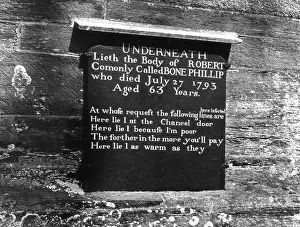 UNDERNEATH
Lieth the Body of ROBERT
Comonly Called BONE PHILLIP
who died July 27 1793
Aged 63 Years.
At whose request the following lines are here inserted
Here lie I at the Chancel door
Here lie I because I'm poor
The forther in the more you'll pay
Here lie I as warm as they